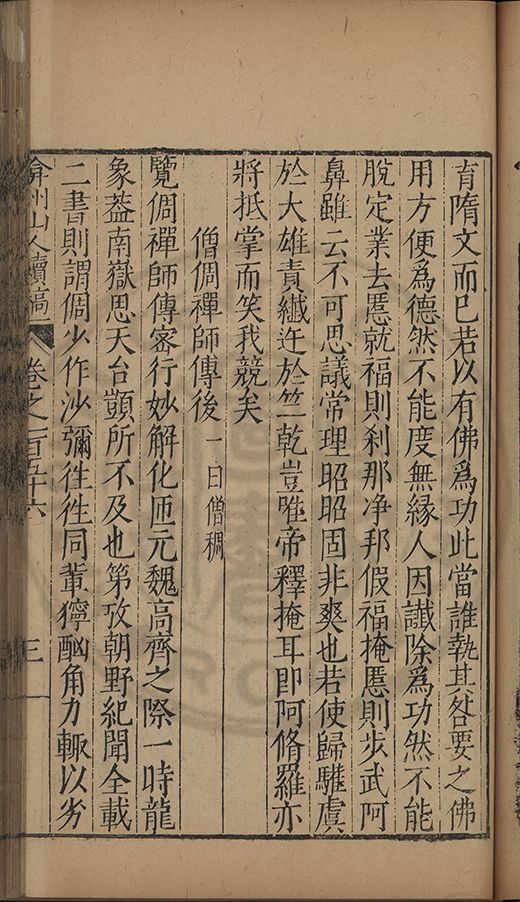 育隋文而已若以有佛為功此當誰執其咎要之佛
用方便為德然不能度無緣人因讖除為功然不能
脫定業去慝就福則刹那净邦假福掩慝則步武阿
鼻雖云不可思議常理昭昭固非爽也若使歸騅虞
於大雄責纖迕於竺乾豈唯帝釋掩耳即阿脩羅亦
將抵掌而笑我競矣
僧倜禪師傳後 一曰僧稠
覽倜禪師傳密行妙解化匝元魏高齊之際一時龍
象葢南嶽思天台顗所不及也第攷朝野紀聞全載
二書則謂倜少作沙彌徃徃同輩獰酗角力輙以劣
弇州山人續稿 卷之一百五十六 三